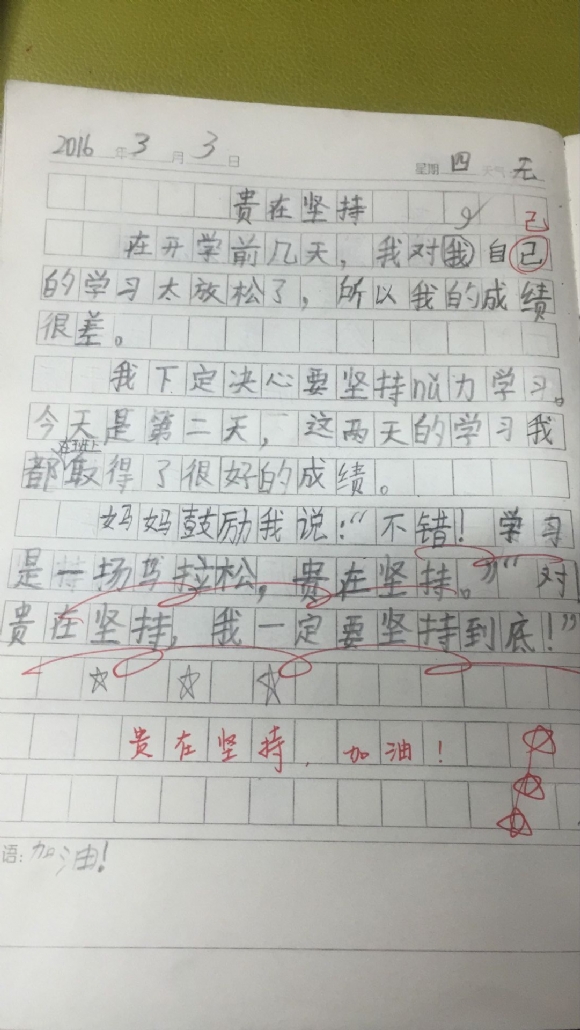 2016年3月3日 星期四 天气无
贵在坚持
己
在开学前几天，我对我自己
的学习太放松了，所以我的成绩
很差。
我下定决心要坚持nǔ力学习。
今天是第二天，这两天的学习我
都取得了很好的成绩。
妈妈鼓励我说：“不错！学习
是一场马拉松，贵在坚持。”“对
贵在坚持，我一定要坚持到底！”
贵在坚持，加油！
语：加油！